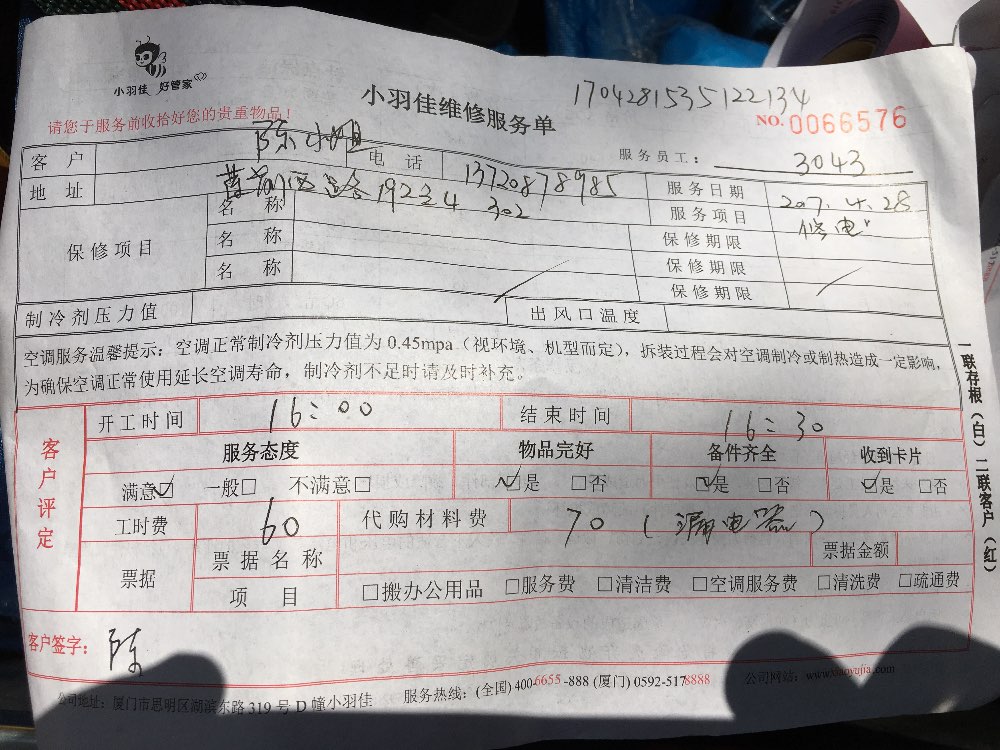 小羽佳 好管家
请您于服务前收拾好您的贵重物品！
小羽佳维修服务单
1704281535122134
NO.0066576
客户 陈小姐 电话 13720878985 服务员工：3043
地址 192号 302 服务日期 2017.4.28
保修项目 名称 服务项目 修电
名称 保修期限
名称 保修期限
保修期限
制冷剂压力值 出风口温度
空调服务温馨提示：空调正常制冷剂压力值为 0.45mpa（视环境、机型而定），拆装过程会对空调制冷或制热造成一定影响，
为确保空调正常使用延长空调寿命，制冷剂不足时请及时补充。
客户评定
开工时间 16:00 结束时间 16:30
服务态度 物品完好 备件齐全 收到卡片
满意☑ 一般□ 不满意□ ☑是 □否 ☑是 □否 ☑是 □否
工时费 60 代购材料费 70（漏电器）
票据 票据名称 票据金额
项目 □搬办公用品 □服务费 □清洁费 □空调服务费 □清洗费 □疏通费
客户签字：陈
公司地址：厦门市思明区湖滨东路 319 号 D 幢小羽佳 服务热线：(全国) 400-6655-888 (厦门) 0592-5178888 公司网站：www.xiaoyujia.com
一联存根（白）二联客户（红）